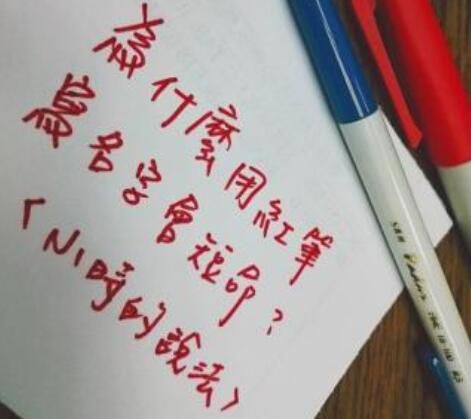 為什麼用紅筆
寫名字會短命?
(小時的說法)